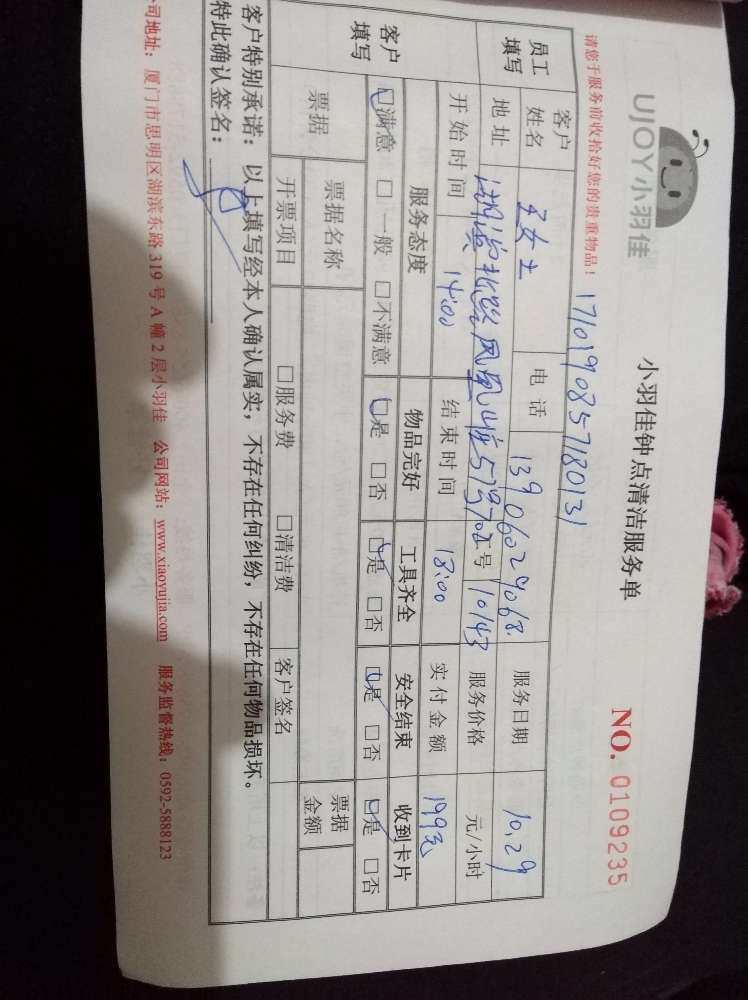 UJOY小羽佳
小羽佳钟点清洁服务单
NO. 0109235
请您于服务前收拾好您的贵重物品！
17101908357180131
员工填写
客户姓名 王女士 电话 13906029068 服务日期 10.29
地址 湖滨北路凤凰山庄 工号 10143 服务价格 元/小时
开始时间 14:00 结束时间 18:00 实付金额 199元
客户填写
服务态度 物品完好 工具齐全 安全结束 收到卡片
☑满意 □一般 □不满意 ☑是 □否 ☑是 □否 ☑是 □否 ☑是 □否
票据 票据名称 票据金额
开票项目 □服务费 □清洁费 客户签名
客户特别承诺：以上填写经本人确认属实，不存在任何纠纷，不存在任何物品损坏。
特此确认签名：
公司地址：厦门市思明区湖滨东路 319 号 A 幢 2 层小羽佳 公司网站：www.xiaoyujia.com 服务监督热线：0592-5888123